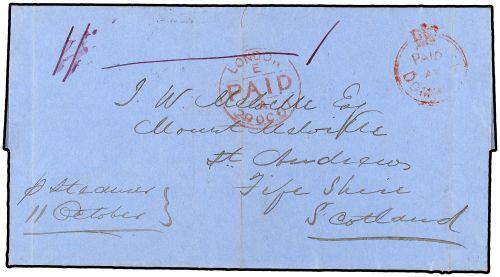 LONDON
E
PAID
29 OC
PAID
AT
J. W. Melville Esq
Mount Melville
St. Andrews
Fife Shire
Scotland
p Steamer
11 October